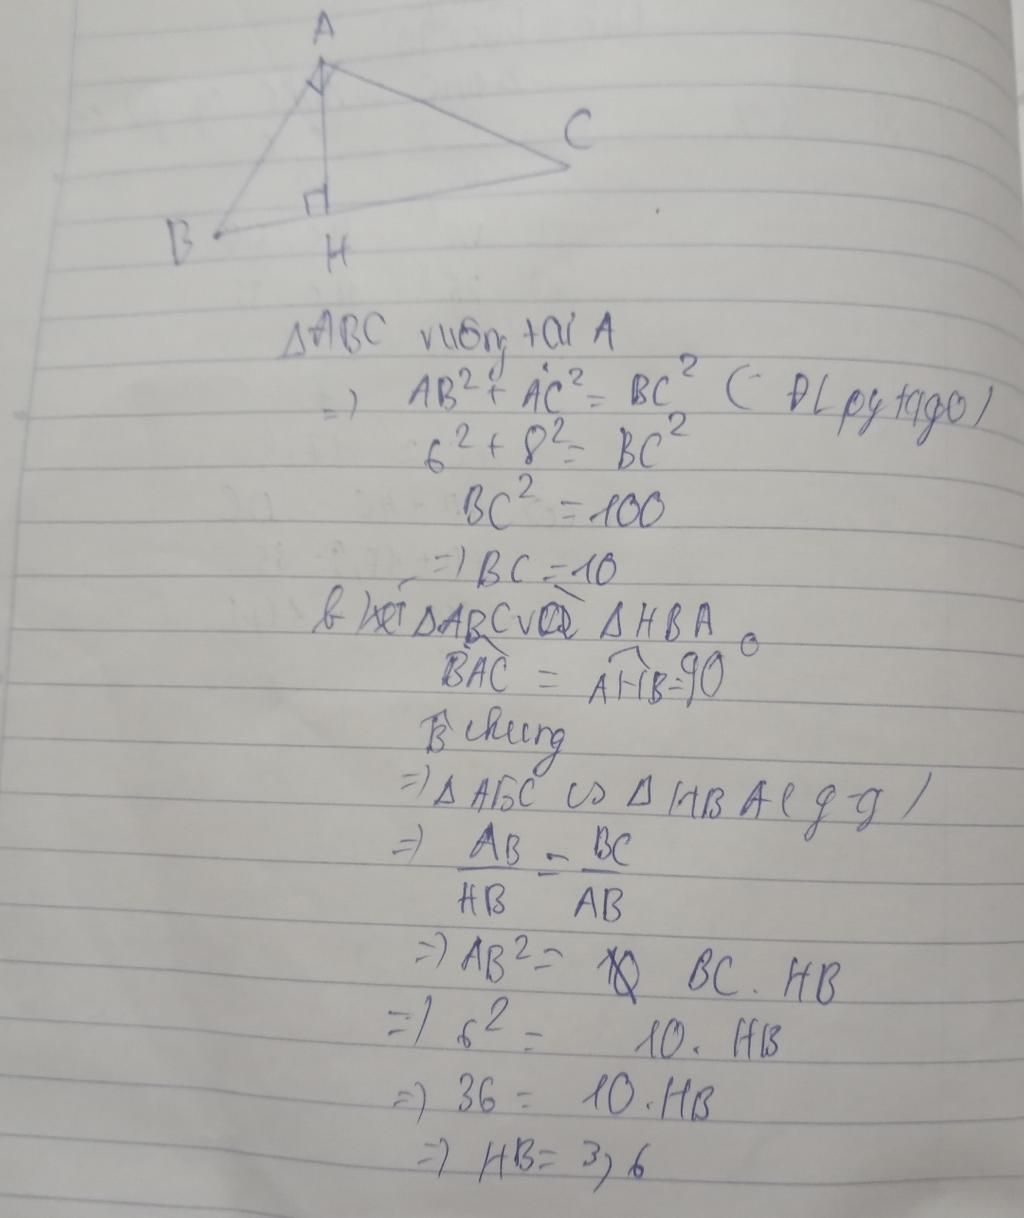 A
C
B
H
ΔABC vuông tại A
=) AB² + AC² = BC² ( ĐL pytago)
6² + 8² = BC²
BC² = 100
=) BC = 10
b) xét ΔABC và ΔHBA
BAC = AHB = 90°
B chung
=) ΔABC ∽ ΔHBA ( g-g )
=) AB/HB = BC/AB
=) AB² = BC . HB
=) 6² = 10. HB
=) 36 = 10.HB
=) HB = 3,6